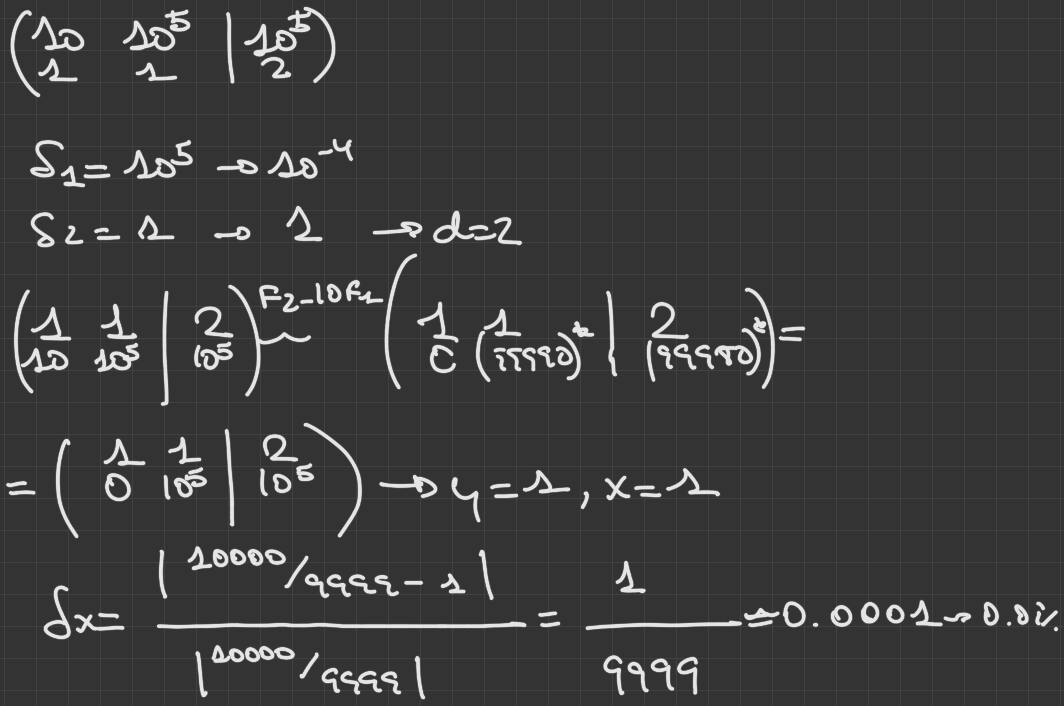 (10 10^5 | 10^5)
(1 1 | 2)
S_1 = 10^5 → 10^-4
S2 = 1 → 1 → d=2
(1 1 | 2) F2-10F1 ~ (1 1 | 2) =
(10 10^5 | 10^5) (0 (99990)* | (99980)*)
= (1 1 | 2) → y=1, x=1
(0 10^5 | 10^5)
δx = |10000/9999 - 1| / |10000/9999| = 1 / 9999 = 0.0001 → 0.01%